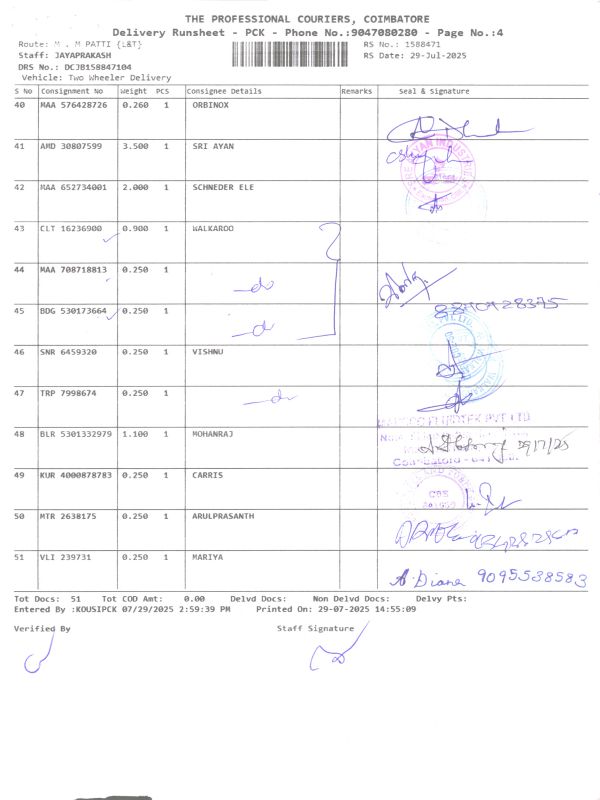 THE PROFESSIONAL COURIERS, COIMBATORE
Delivery Runsheet - PCK - Phone No.:9047080280 - Page No.:4
Route: M . M PATTI {L&T}
RS No.: 1588471
Staff: JAYAPRAKASH
RS Date: 29-Jul-2025
DRS No.: DCJB158847104
Vehicle: Two Wheeler Delivery
S No Consignment No Weight PCS Consignee Details Remarks Seal & Signature
40 MAA 576428726 0.260 1 ORBINOX
41 AMD 30807599 3.500 1 SRI AYAN
42 MAA 652734001 2.000 1 SCHNEDER ELE
43 CLT 16236900 0.900 1 WALKAROO
44 MAA 708718813 0.250 1 —do
45 BDG 530173664 0.250 1 —do
46 SNR 6459320 0.250 1 VISHNU
47 TRP 7998674 0.250 1 —do
48 BLR 5301332979 1.100 1 MOHANRAJ 29/7/25
49 KUR 4000878783 0.250 1 CARRIS
50 MTR 2638175 0.250 1 ARULPRASANTH
51 VLI 239731 0.250 1 MARIYA A. Diana 9095538583
Tot Docs: 51 Tot COD Amt: 0.00 Delvd Docs: Non Delvd Docs: Delvy Pts:
Entered By :KOUSIPCK 07/29/2025 2:59:39 PM Printed On: 29-07-2025 14:55:09
Verified By Staff Signature